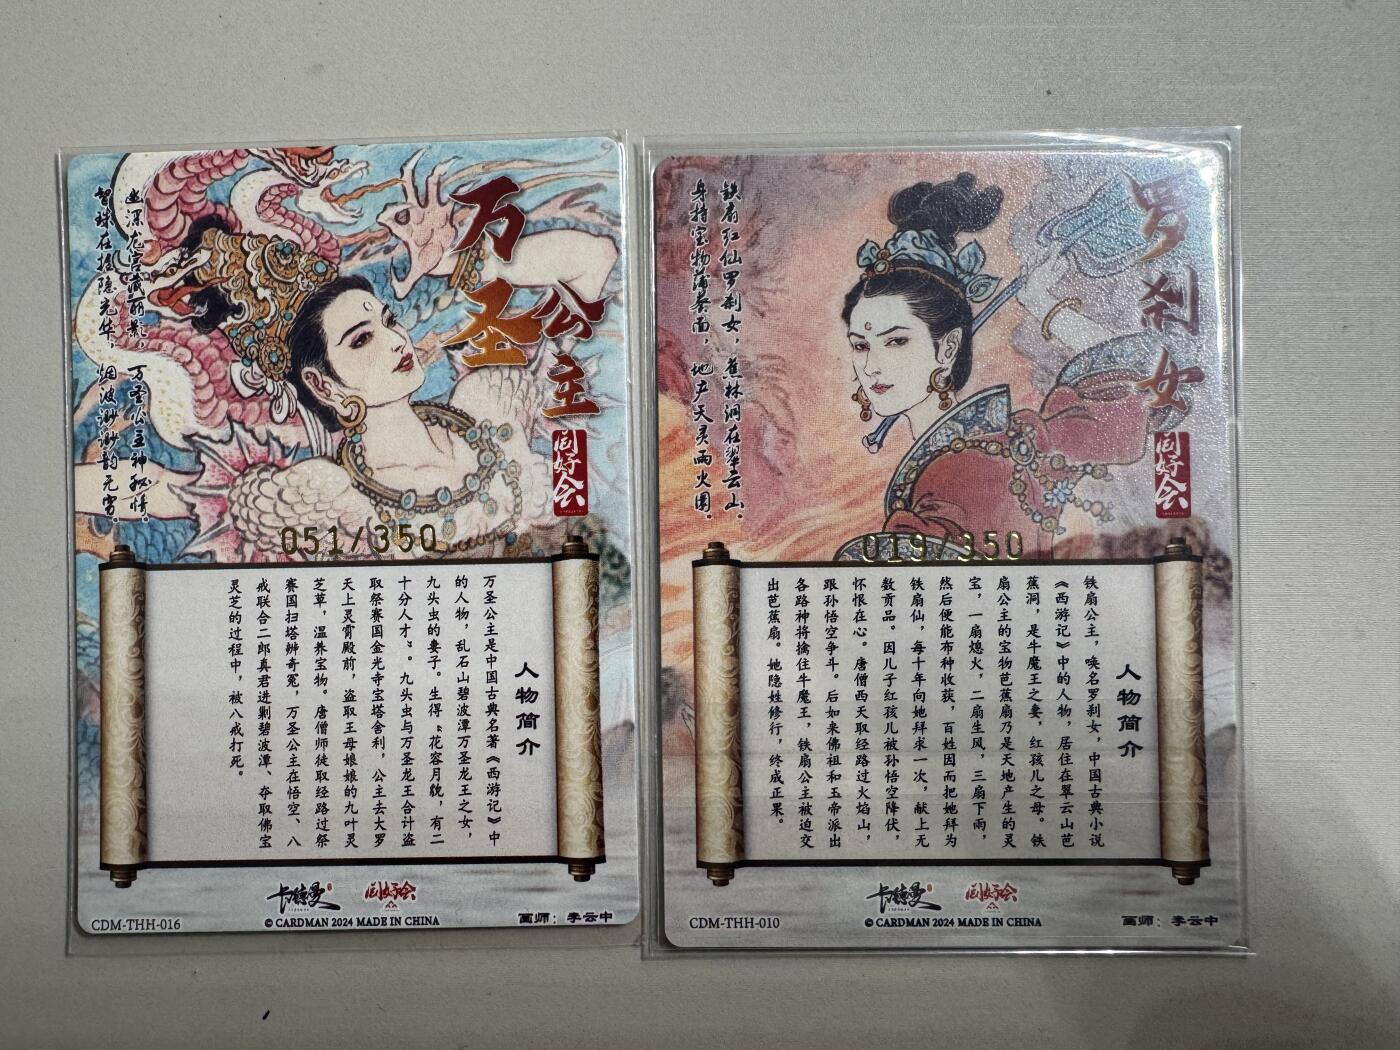 万圣
公主
闺好会
幽深龙宫藏丽影，万圣公主神秘情。
智珠在握隐光华，烟波渺渺韵无穷。
051/350
人物简介
万圣公主是中国古典名著《西游记》中
的人物，乱石山碧波潭万圣龙王之女，
九头虫的妻子。生得“花容月貌，有二
十分人才”。九头虫与万圣龙王合计盗
取祭赛国金光寺宝塔舍利，公主去大罗
天上灵霄殿前，盗取王母娘娘的九叶灵
芝草，温养宝物。唐僧师徒取经路过祭
赛国扫塔辨奇冤，万圣公主在悟空、八
戒联合二郎真君进剿碧波潭、夺取佛宝
灵芝的过程中，被八戒打死。
卡德曼
闺好会
CDM-THH-016
© CARDMAN 2024 MADE IN CHINA
画师：李云中
罗刹女
闺好会
铁扇红仙罗刹女，蕉林洞在翠云山。
身持宝物蒲葵面，地产天灵两火圆。
019/350
人物简介
铁扇公主，唤名罗刹女，中国古典小说
《西游记》中的人物，居住在翠云山芭
蕉洞，是牛魔王之妻，红孩儿之母。铁
扇公主的宝物芭蕉扇乃是天地产生的灵
宝，一扇熄火，二扇生风，三扇下雨，
然后便能布种收获，百姓因而把她拜为
铁扇仙，每十年向她拜求一次，献上无
数贡品。因儿子红孩儿被孙悟空降伏，
怀恨在心。唐僧西天取经路过火焰山，
跟孙悟空争斗。后如来佛祖和玉帝派出
各路神将擒住牛魔王，铁扇公主被迫交
出芭蕉扇。她隐姓修行，终成正果。
卡德曼
闺好会
CDM-THH-010
© CARDMAN 2024 MADE IN CHINA
画师：李云中